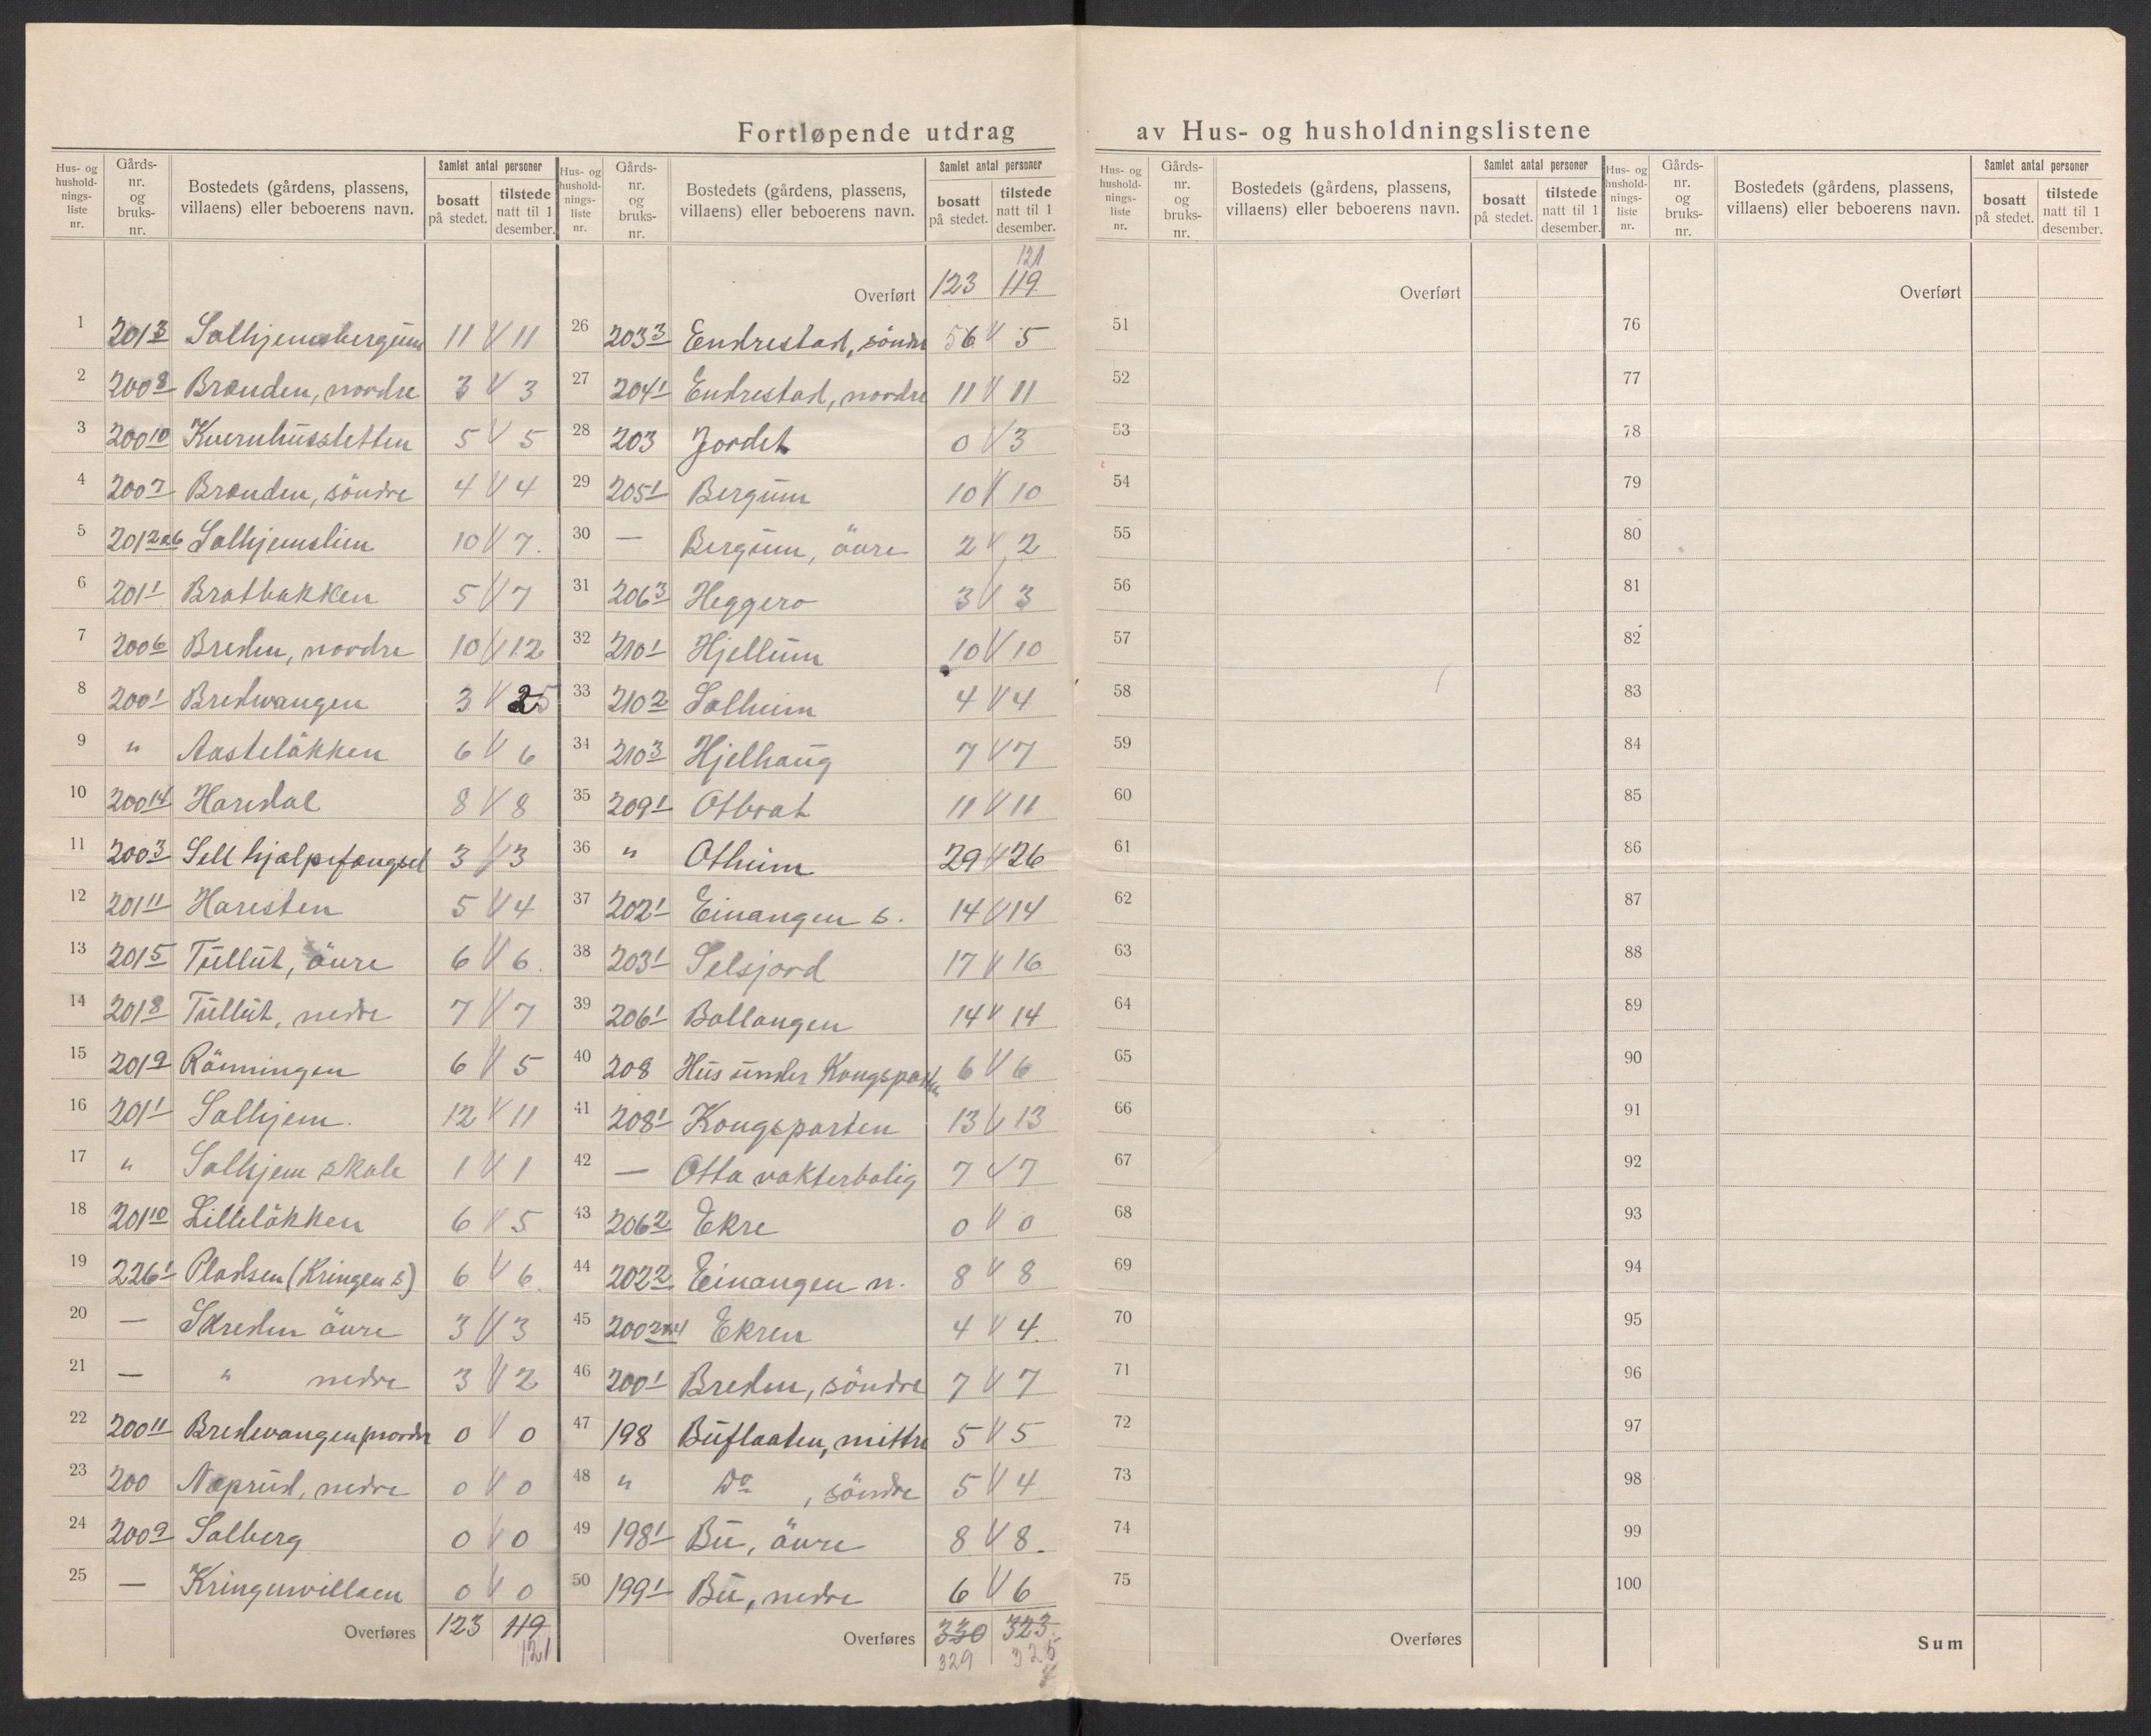 Fortløpende utdrag av Hus- og husholdningslistene
Hus- og hushold- nings- liste nr. | Gårds- nr. og bruks- nr. | Bostedets (gårdens, plassens, villaens) eller beboerens navn. | Samlet antal personer | bosatt på stedet. | tilstede natt til 1 desember.
1 201 3 Solhjemsbergum 11 V 11
2 200 8 Brænden, nordre 3 V 3
3 200 10 Kvernhussletten 5 V 5
4 200 7 Brænden, söndre 4 V 4
5 201 2 & 6 Solhjemslien 10 V 7.
6 201 1 Bratbakken 5 V 7
7 200 6 Breden, nordre 10 V 12
8 200 1 Bredevangen 3 V 25
9 " Aasteløkken 6 V 6
10 200 14 Haredal 8 V 8
11 200 3 Sell hjælpefængsel 3 V 3
12 201 11 Haresten 5 V 4
13 201 5 Tullut, övre 6 V 6.
14 201 8 Tullut, nedre 7 V 7
15 201 9 Rönningen 6 V 5
16 201 1 Solhjem. 12 V 11
17 " Solhjem skole 1 V 1
18 201 10 Lilleløkken 6 V 5
19 226 1 Pladsen (Kringen s) 6 V 6.
20 — Skreden övre 3 V 3
21 — " nedre 3 V 2
22 200 11 Bredevangen, nordre 0 V 0
23 200 Næprud, nedre 0 V 0
24 200 9 Solberg 0 V 0
25 — Kringenvillaen 0 V 0
Overføres 123 119
121
Hus- og hushold- nings- liste nr. | Gårds- nr. og bruks- nr. | Bostedets (gårdens, plassens, villaens) eller beboerens navn. | Samlet antal personer | bosatt på stedet. | tilstede natt til 1 desember.
121
Overført 123 119
26 203 3 Endrestad, söndre 56 V 5
27 204 1 Endrestad, nordre 11 V 11
28 203 Jordet 0 V 3
29 205 1 Bergum 10 V 10
30 — Bergum, övre 2 V 2
31 206 3 Heggero 3 V 3
32 210 1 Hjellum 10 V 10
33 210 2 Solheim 4 V 4
34 210 3 Hjelhaug 7 V 7
35 209 1 Otbrat 11 V 11
36 " Otheim 29 V 26
37 202 1 Einangen s. 14 V 14
38 203 1 Selsjord 17 V 16
39 206 1 Bollangen 14 V 14
40 208 Hus under Kongsparten 6 V 6
41 208 1 Kongsparten 13 V 13
42 — Otta vokterbolig 7 V 7
43 206 2 Ekre 0 V 0
44 202 2 Einangen n. 8 V 8
45 200 2 & 4 Ekren 4 V 4.
46 200 1 Breden, söndre 7 V 7
47 198 Buflaaten, mittre 5 V 5
48 " Do , söndre 5 V 4
49 198 1 Bu, övre 8 V 8.
50 199 1 Bu, nedre 6 V 6
Overføres 330 323.
329 325
Hus- og hushold- nings- liste nr. | Gårds- nr. og bruks- nr. | Bostedets (gårdens, plassens, villaens) eller beboerens navn. | Samlet antal personer | bosatt på stedet. | tilstede natt til 1 desember.
Overført
51
52
53
54
55
56
57
58
59
60
61
62
63
64
65
66
67
68
69
70
71
72
73
74
75
Overføres
Hus- og hushold- nings- liste nr. | Gårds- nr. og bruks- nr. | Bostedets (gårdens, plassens, villaens) eller beboerens navn. | Samlet antal personer | bosatt på stedet. | tilstede natt til 1 desember.
Overført
76
77
78
79
80
81
82
83
84
85
86
87
88
89
90
91
92
93
94
95
96
97
98
99
100
Sum